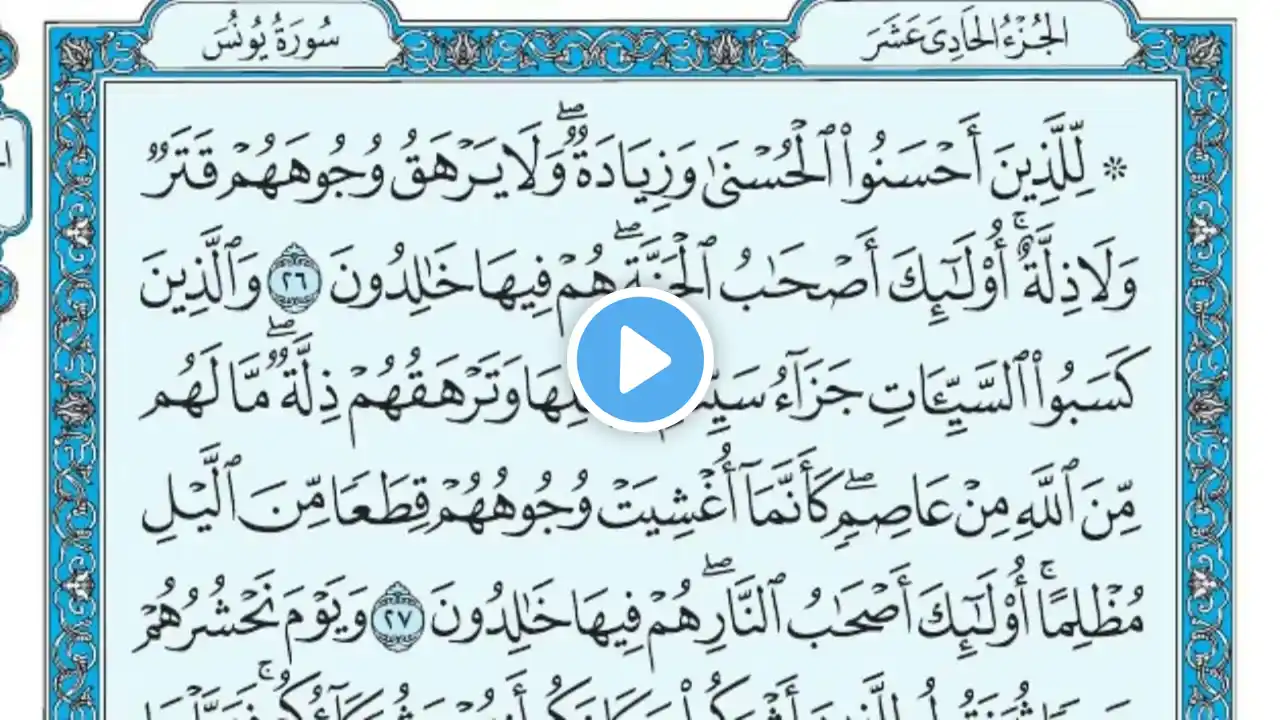 الجُزْءُ الحَادِى عَشَرَ
سُورَةُ يُونُسَ
* لِّلَّذِينَ أَحْسَنُوا۟ ٱلْحُسْنَىٰ وَزِيَادَةٌۖ وَلَا يَرْهَقُ وُجُوهَهُمْ قَتَرٌ
وَلَا ذِلَّةٌۚ أُو۟لَـٰٓئِكَ أَصْحَـٰبُ ٱلْجَنَّةِۖ هُمْ فِيهَا خَـٰلِدُونَ ٢٦ وَٱلَّذِينَ
كَسَبُوا۟ ٱلسَّيِّـَٔاتِ جَزَآءُ وَتَرْهَقُهُمْ ذِلَّةٌۖ مَّا لَهُم
مِّنَ ٱللَّهِ مِنْ عَاصِمٍۖ كَأَنَّمَآ أُغْشِيَتْ وُجُوهُهُمْ قِطَعًا مِّنَ ٱلَّيْلِ
مُظْلِمًاۚ أُو۟لَـٰٓئِكَ أَصْحَـٰبُ ٱلنَّارِۖ هُمْ فِيهَا خَـٰلِدُونَ ٢٧ وَيَوْمَ نَحْشُرُهُمْ